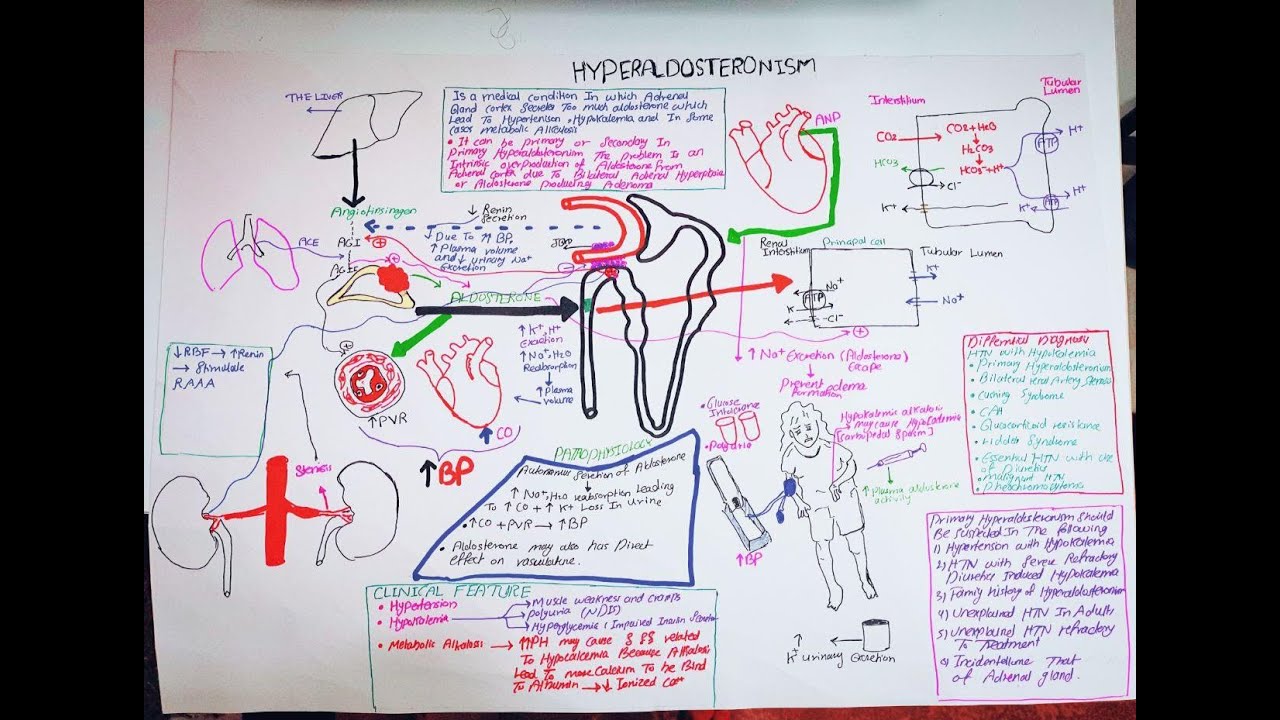 HYPERALDOSTERONISM
THE LIVER
Is a medical condition In which Adrenal
Gland cortex Secretes Too much aldosterone which
Lead To Hypertension, Hypokalemia and In Some
cases metabolic Alkalosis
• It can be primary or Secondary In
primary Hyperaldosteronism The problem Is an
Intrinsic overproduction of Aldosterone From
Adrenal cortex due To Bilateral Adrenal Hyperplasia
or Aldosterone producing Adenoma
ANP
Interstitium
Tubular
Lumen
CO2
CO2 + H2O
H2CO3
HCO3- + H+
HCO3
Cl-
K+
ATP
H+
ATP
H+
K+
Angiotinsinogen
ACE
AGI
AGII
↓ Renin
Secretion
↓ Due To ↑ BP,
↑ Plasma volume
and ↓ urinary Na+
Excretion
ALDOSTERONE
↑ K+, H+
Excretion
↑ Na+, H2O
Reabsorption
↑ Plasma
volume
Renal
Interstitium
Prinapal cell
Tubular Lumen
Na+
ATP
K
Cl-
K+
Na+
↓RBF → ↑Renin
→ Stimulate
RAAA
↑PVR
↑ CO
↑BP
↑ Na+ Excretion (Aldosterone
Escape
Prevent edema
Formation
• Glucose
Intolerance
• Polyuria
Hypokalemic alkalosis
→ may cause Hypocalcemia
[carbipedal Spasm]
↑ Plasma aldosterone
activity
↑BP
↑
K+ urinary Excretion
Differential Diagnosis
HTN with Hypokalemia
• Primary Hyperaldosteronism
• Bilateral renal Artery Stenosis
• Cushing Syndrome
• CAH
• Glucocorticoid resistance
• Liddle Syndrome
• Essential HTN with use
of Diuretics
• malignant HTN
• Pheochromocytoma
Stenosis
PATHOPHYSIOLOGY
Autonomus Secretion of Aldosterone
↑ Na+, H2O reabsorption Leading
To ↑ CO + ↑ K+ Loss In Urine
• ↑CO + PVR → ↑ BP
• Aldosterone may also has Direct
effect on vasculature.
CLINICAL FEATURE
• Hypertension
• Hypokalemia
Muscle weakness and cramps
Polyuria (NDI)
Hyperglycemia (Impaired Insulin Secretion
• Metabolic Alkalosis → ↑PH may cause related
To Hypocalcemia Because Alkalosis
Lead To more Calcium To be Bind
To Albumin → ↓ Ionized Ca++
Primary Hyperaldosteronism Should
Be Suspected In The following
1) Hypertension with Hypokalemia
2) HTN with Severe Refractory
Diuretics Induced Hypokalemia
3) Family history of Hyperaldosteronism
4) Unexplained HTN In Adults
5) Unexplained HTN refractory
To Treatment
6) Incidentellume That
of Adrenal gland.